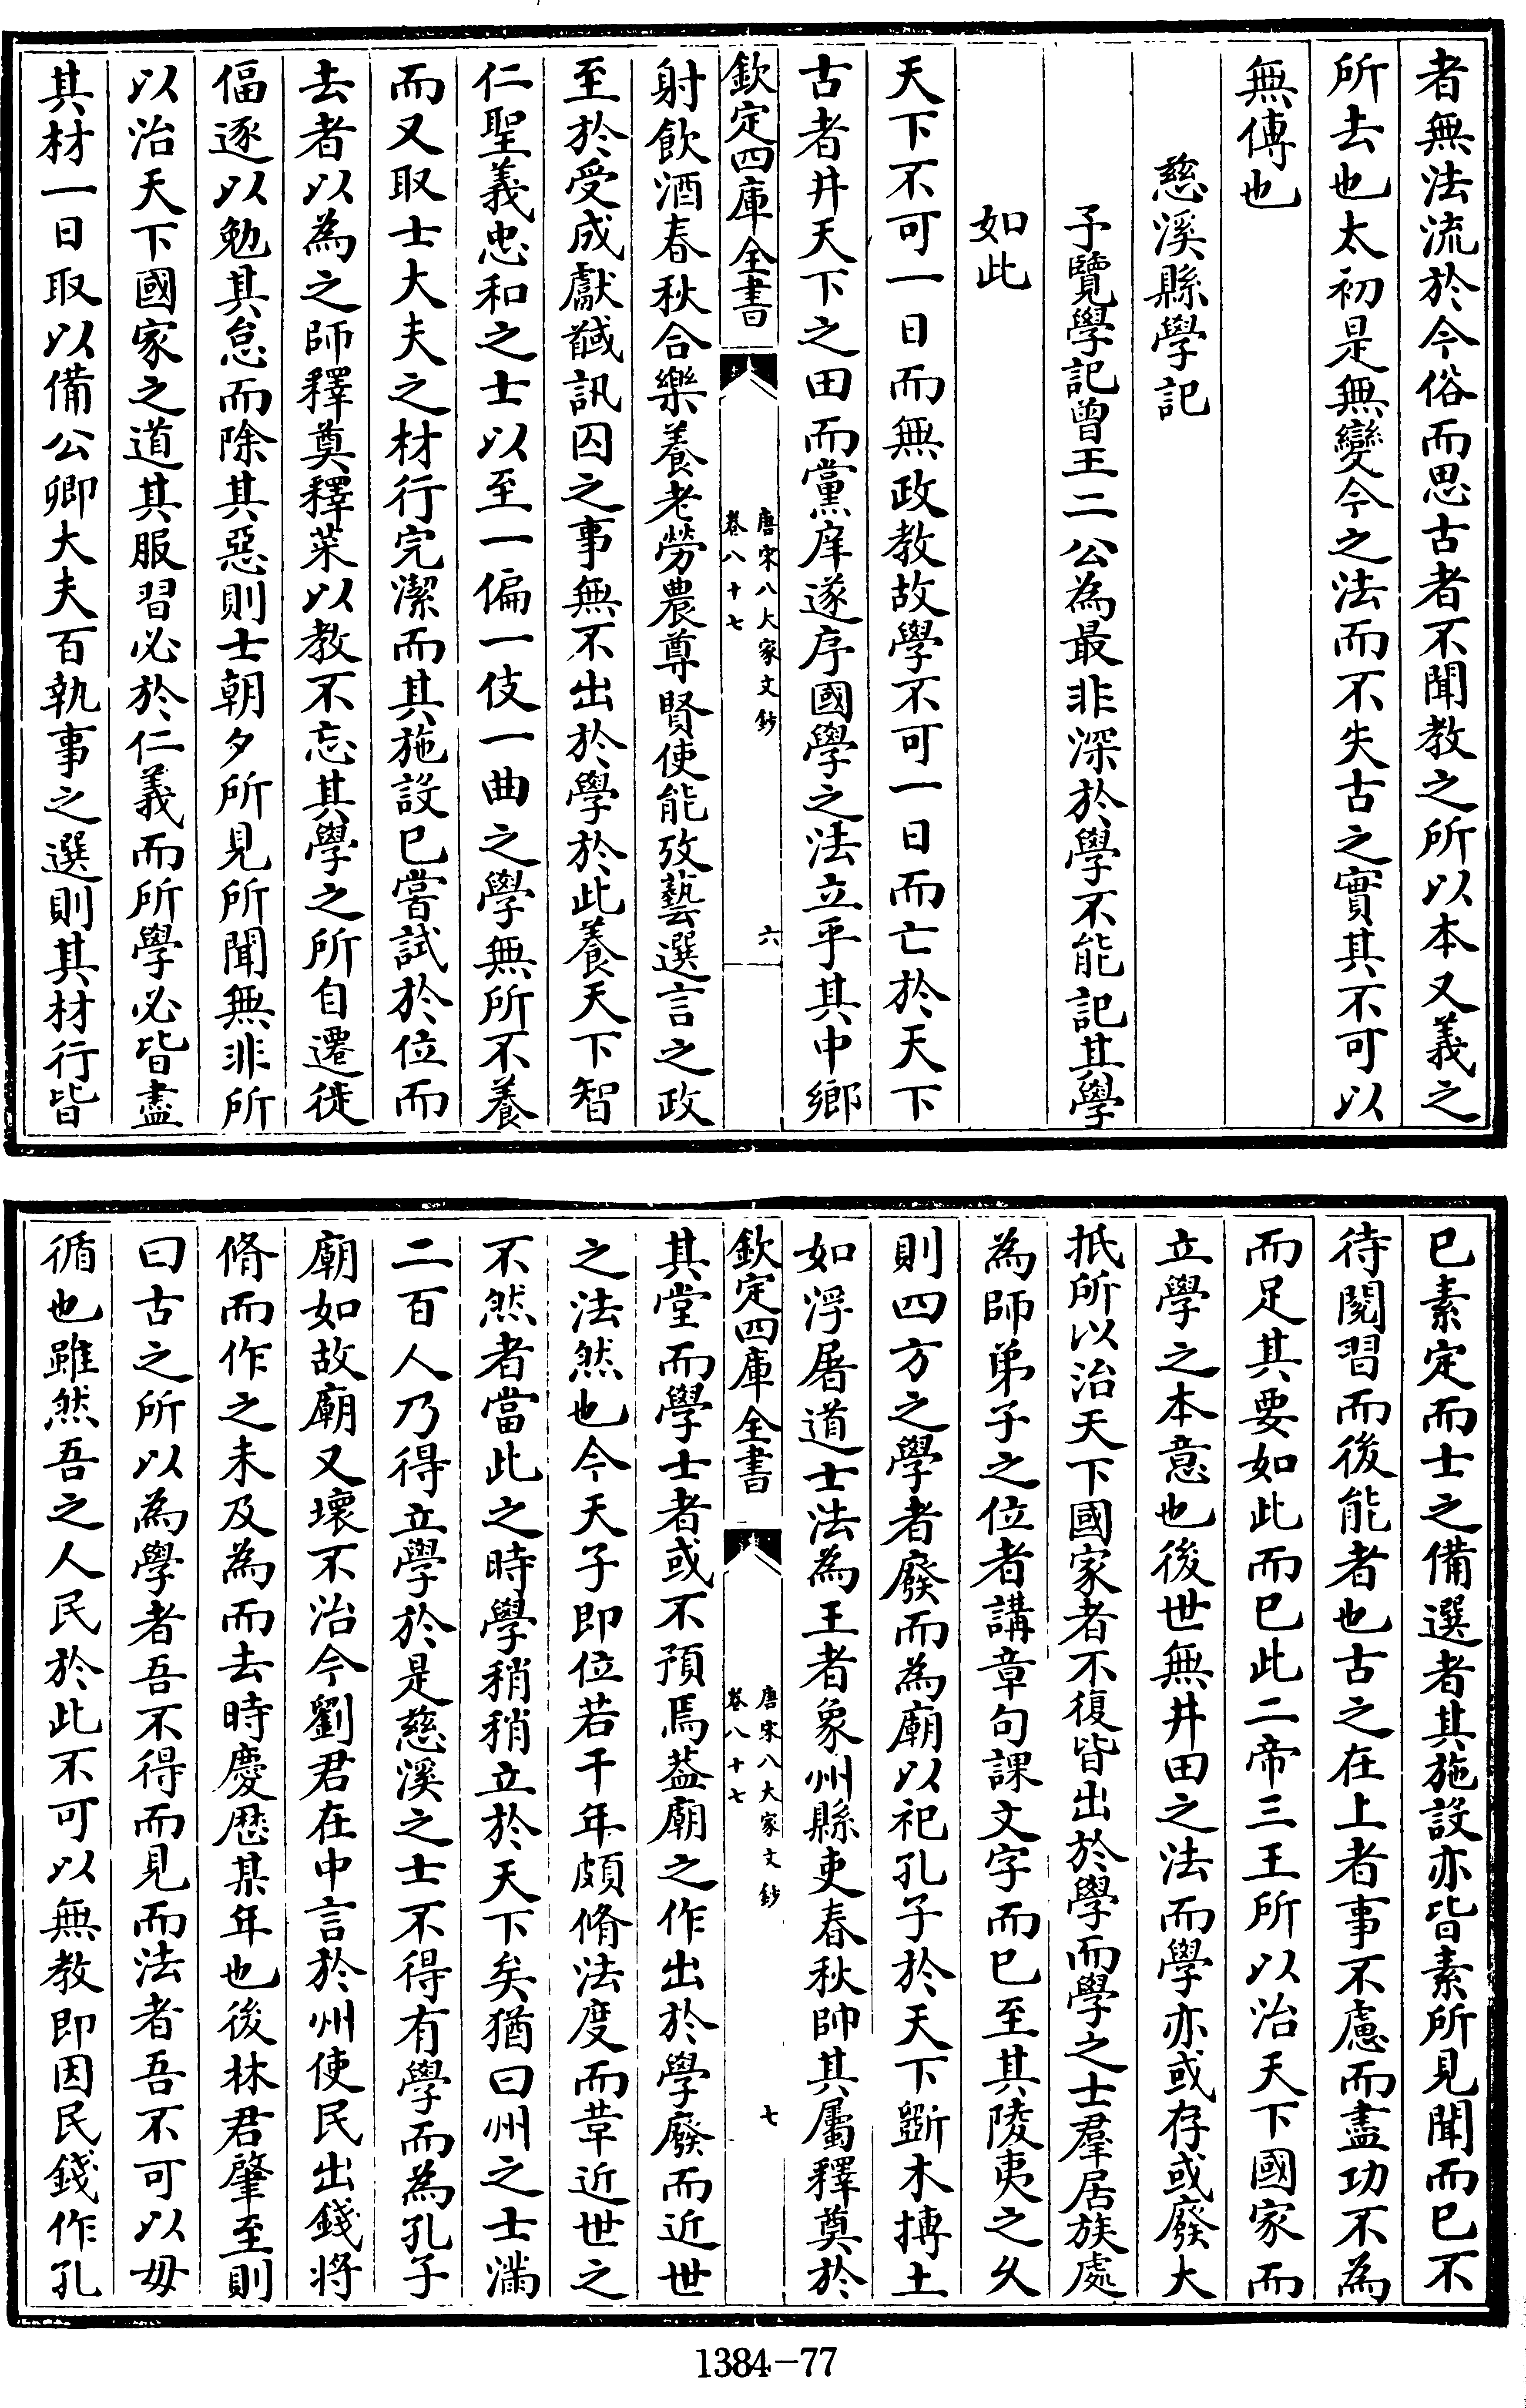 者無法流於今俗而思古者不聞教之所以本又義之
所去也太初是無變今之法而不失古之實其不可以
無傳也
慈溪縣學記
予覽學記曾王二公為最非深於學不能記其學
如此
天下不可一日而無政教故學不可一日而亡於天下
古者井天下之田而黨庠遂序國學之法立乎其中鄉
欽定四庫全書
唐宋八大家文鈔
卷八十七
六
射飲酒春秋合樂養老勞農尊賢使能攷藝選言之政
至於受成獻馘訊囚之事無不出於學於此養天下智
仁聖義忠和之士以至一偏一伎一曲之學無所不養
而又取士大夫之材行完潔而其施設已嘗試於位而
去者以為之師釋奠釋菜以教不忘其學之所自遷徙
偪逐以勉其怠而除其惡則士朝夕所見所聞無非所
以治天下國家之道其服習必於仁義而所學必皆盡
其材一日取以備公卿大夫百執事之選則其材行皆
已素定而士之備選者其施設亦皆素所見聞而已不
待閱習而後能者也古之在上者事不慮而盡功不為
而足其要如此而已此二帝三王所以治天下國家而
立學之本意也後世無井田之法而學亦或存或廢大
抵所以治天下國家者不復皆出於學而學之士羣居族處
為師弟子之位者講章句課文字而已至其陵夷之久
則四方之學者廢而為廟以祀孔子於天下斲木摶土
如浮屠道士法為王者象州縣吏春秋帥其屬釋奠於
欽定四庫全書
唐宋八大家文鈔
卷八十七
七
其堂而學士者或不預焉葢廟之作出於學廢而近世
之法然也今天子即位若干年頗脩法度而革近世之
不然者當此之時學稍稍立於天下矣猶曰州之士滿
二百人乃得立學於是慈溪之士不得有學而為孔子
廟如故廟又壞不治今劉君在中言於州使民出錢將
脩而作之未及為而去時慶歷某年也後林君肇至則
曰古之所以為學者吾不得而見而法者吾不可以毋
循也雖然吾之人民於此不可以無教即因民錢作孔
1384-77